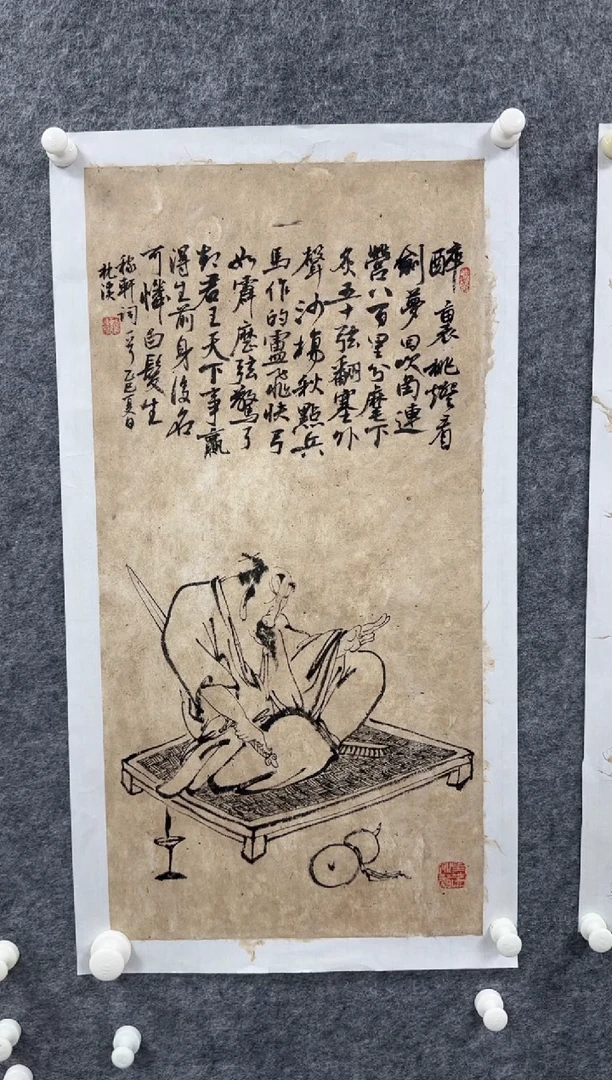 醉裏挑燈看
劍夢回吹角連
營八百里分麾下
炙五十弦翻塞外
聲沙場秋點兵
馬作的盧飛快弓
如霹歷弦驚了
却君王天下事贏
得生前身後名
可憐白髮生
稼軒詞一首乙巳夏日